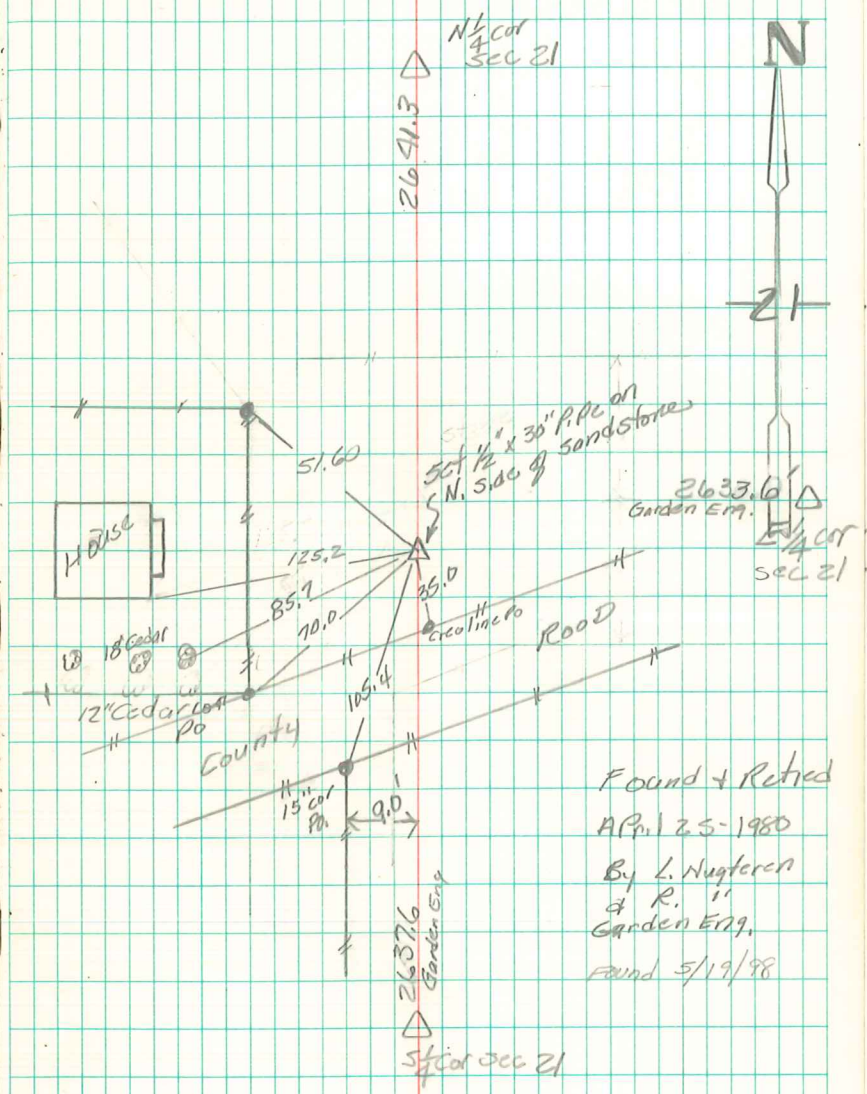 N 1/4 cor
sec 21
N
2641.3
21
51.60
Set 1/2" x 30" Pipe on
N. Side of Sandstone
2633.6'
Garden Eng.
E 1/4 cor
sec 21
House
125.2
85.7
70.0
35.0
Creoline Po
18" Cedar
12" Cedar cor
Po
105.4
County
Road
15" cor
Po.
9.0'
Found & Retied
April 25-1980
By L. Nugteren
& R. "
Garden Eng.
Found 5/19/98
2637.6
Garden Eng
S 1/4 Cor Sec 21